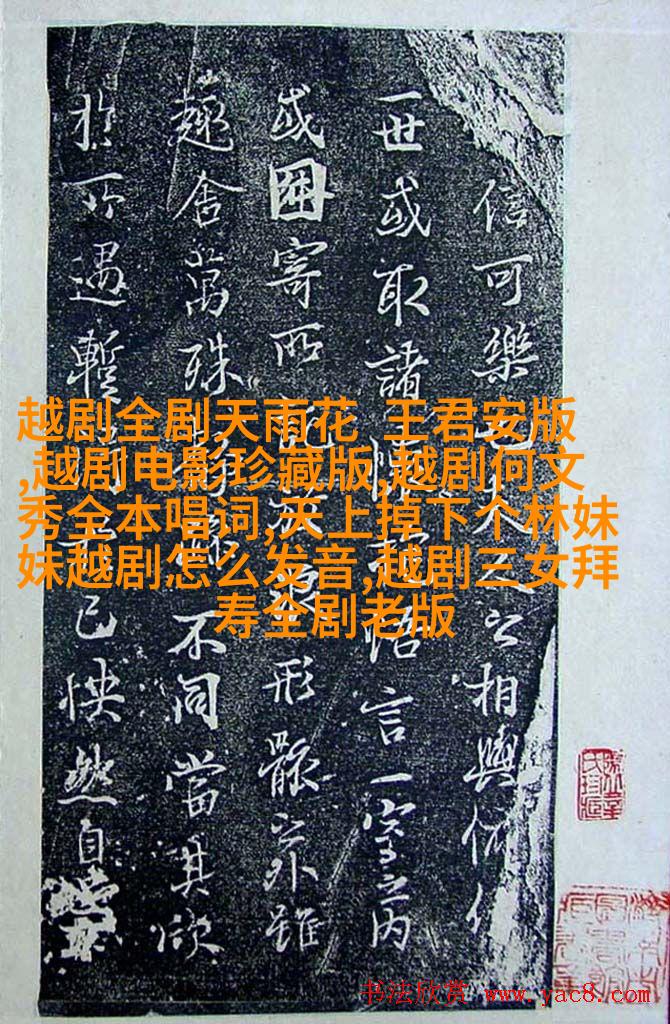 信可樂也夫人之相與俯仰
一世或取諸懷抱悟言一室之内
或因寄所託放浪形骸之外雖
趣舍萬殊静躁不同當其欣
於所遇暫得於己快然自
越剧全剧天雨花 王君安版
,越剧电影珍藏版,越剧何文
秀全本唱词,天上掉下个林妹
妹越剧怎么发音,越剧三女拜
寿全剧老版
书法欣赏 www.yac8.com